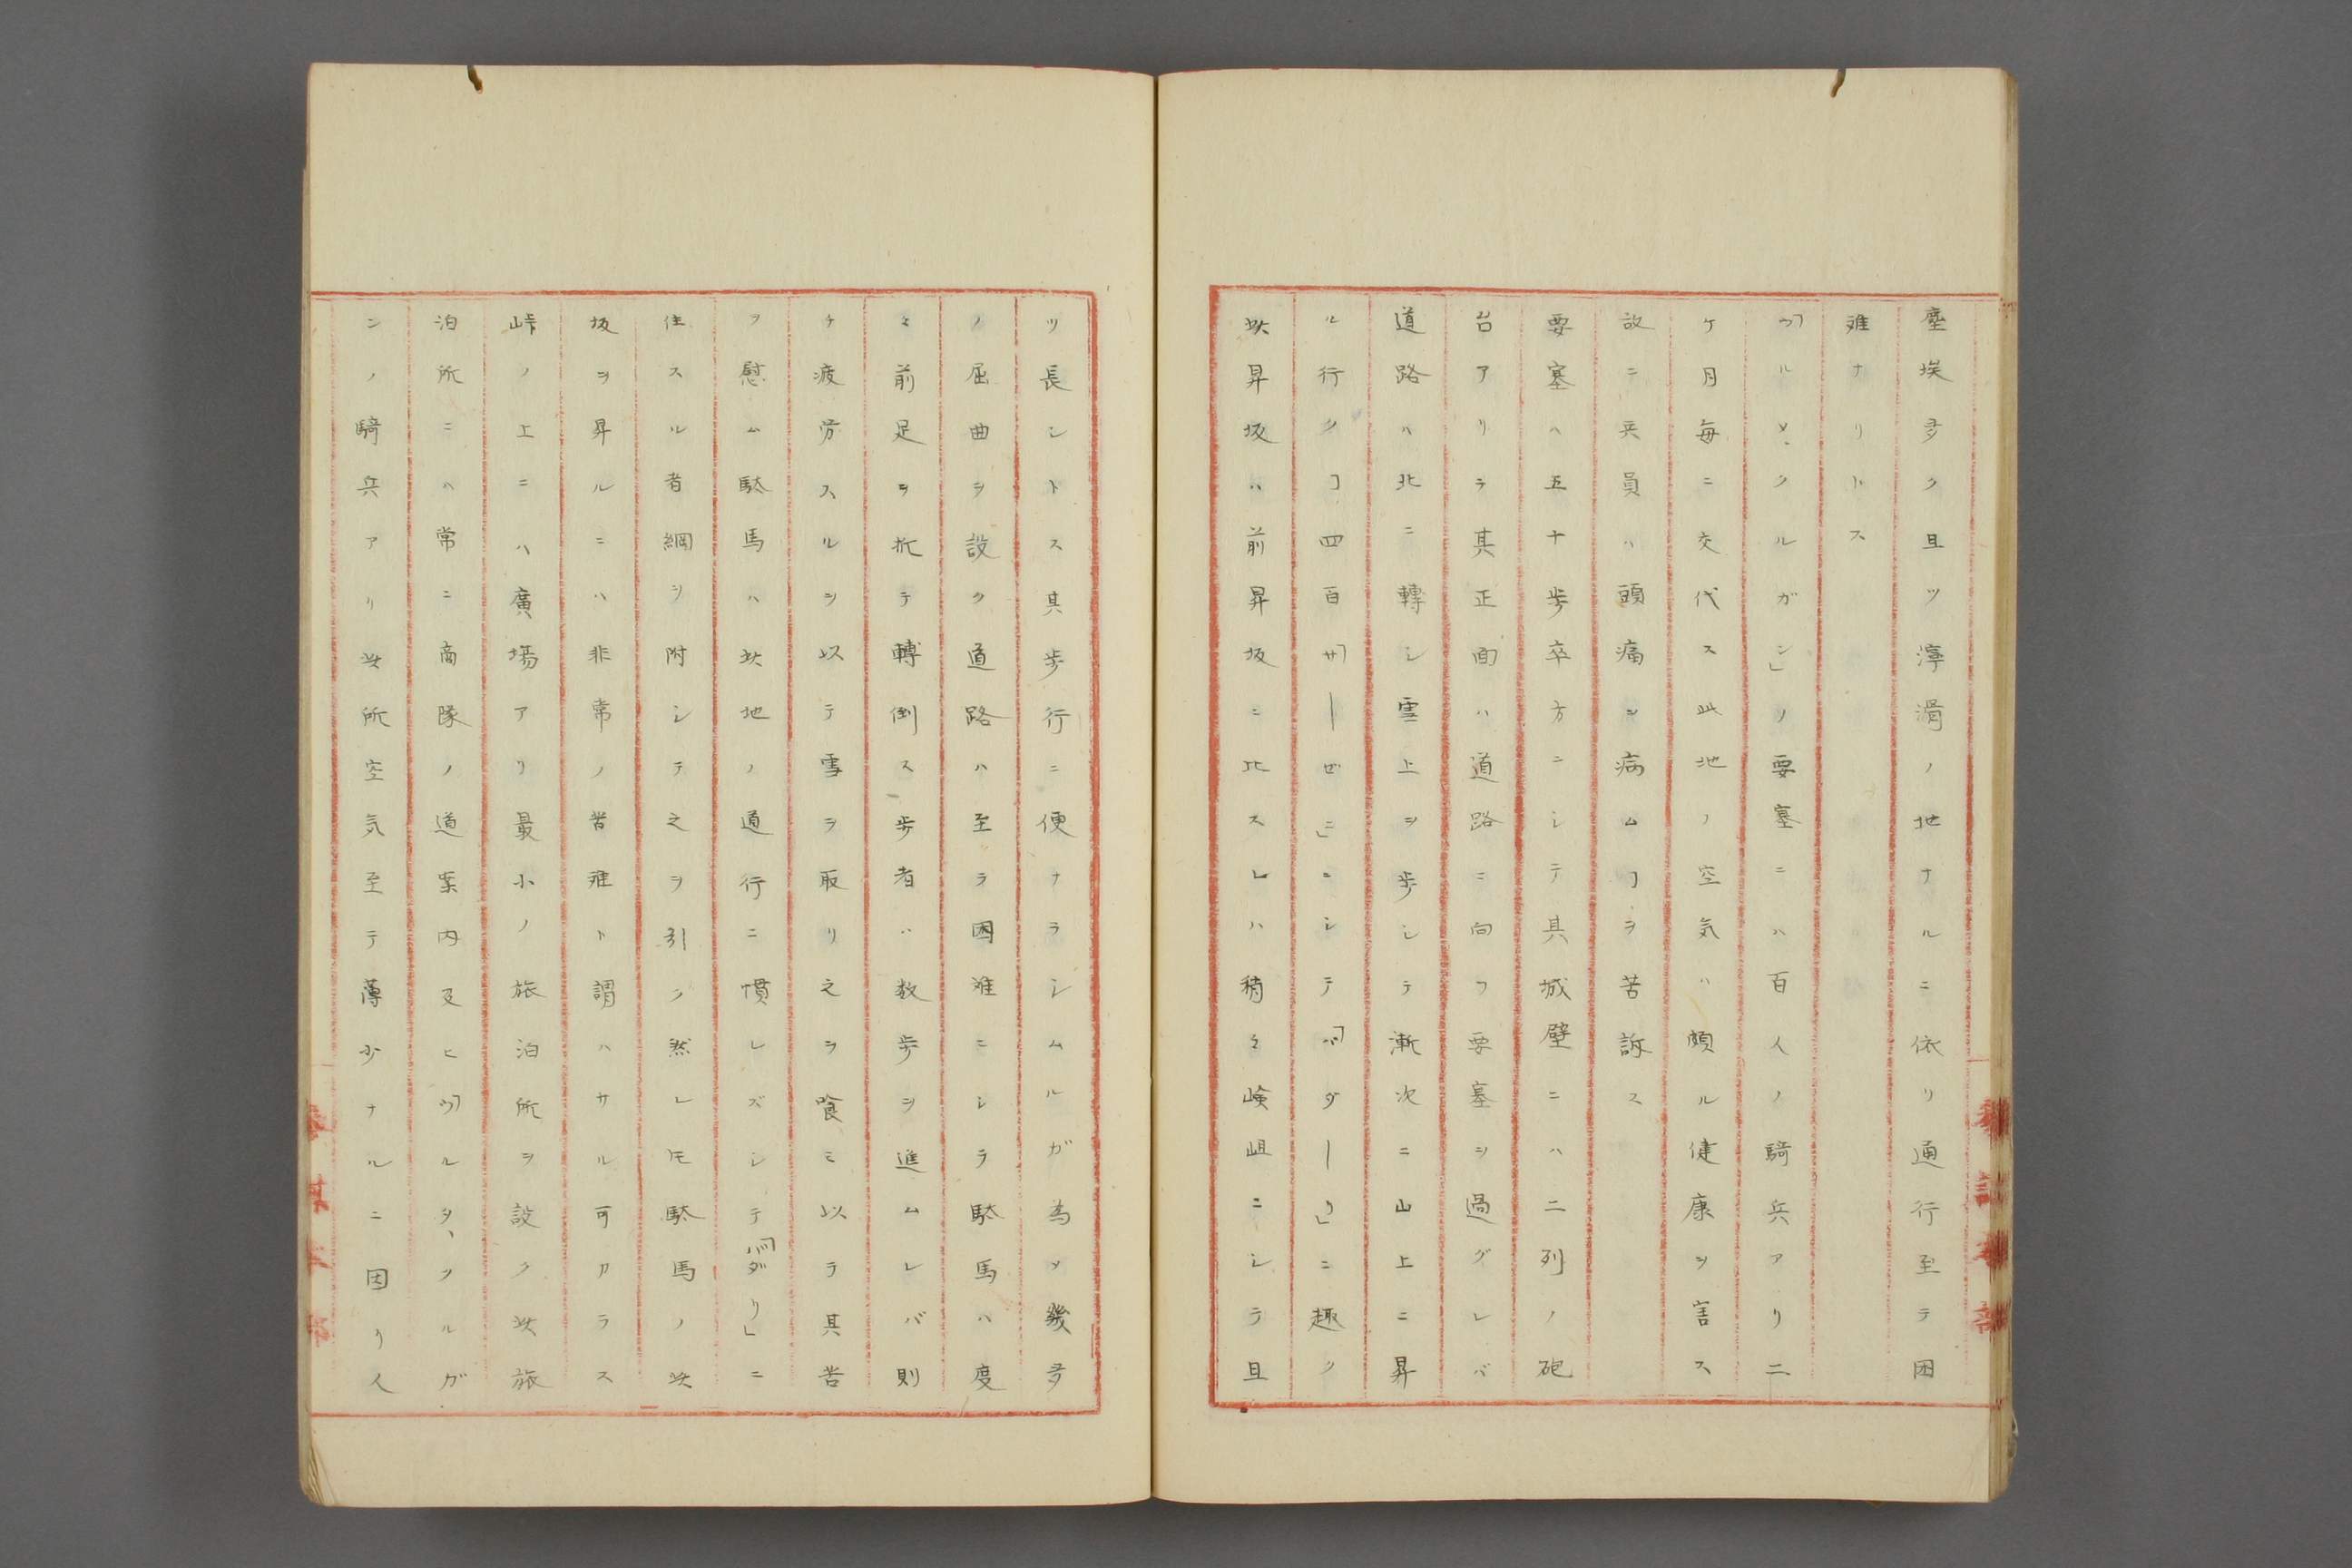 塵埃多ク且ツ濘滑ノ地ナルニ依リ通行至テ困
难ナリトス
「ウルタヽクルガン」ノ要塞ニハ百人ノ騎兵アリ二
ケ月毎ニ交代ス此地ノ空気ハ頗ル健康ヲ害ス
故ニ兵員ハ頭痛ヲ病ムヿヲ苦訴ス
要塞ハ五十歩卒方ニシテ其城壁ニハ二列ノ砲
台アリテ其正面ハ道路ニ向フ要塞ヲ過グレバ
道路ハ北ニ轉シ雪上ヲ歩シテ漸次ニ山上ニ昇
ル行クヿ四百「サーゼニ」ニシテ「パダーリ」ニ趣ク
此昇坂ハ前昇坂ニ比スレハ稍々嶮岨ニシテ且
ツ長シトス其歩行ニ便ナラシムルガ為メ幾多
ノ屈曲ヲ設ク道路ハ至テ困难ニシテ駄馬ハ度
々前足ヲ折テ轉倒ス歩者ハ数歩ヲ進ムレバ則
チ疲労スルヲ以テ雪ヲ取リ之ヲ喰ミ以テ其苦
ヲ慰ム駄馬ハ此地ノ通行ニ慣レズシテ「パダリ」ニ
住スル者綱ヲ附シテ之ヲ引ク然レ𪜈駄馬ノ此
坂ヲ昇ルニハ非常ノ苦难ト謂ハサル可カラス
峠ノ上ニハ廣場アリ最小ノ旅泊所ヲ設ク此旅
泊所ニハ常ニ商隊ノ道案内及ヒ「ウルタヽクルガ
ンノ騎兵アリ此所空気至テ薄少ナルニ因リ人